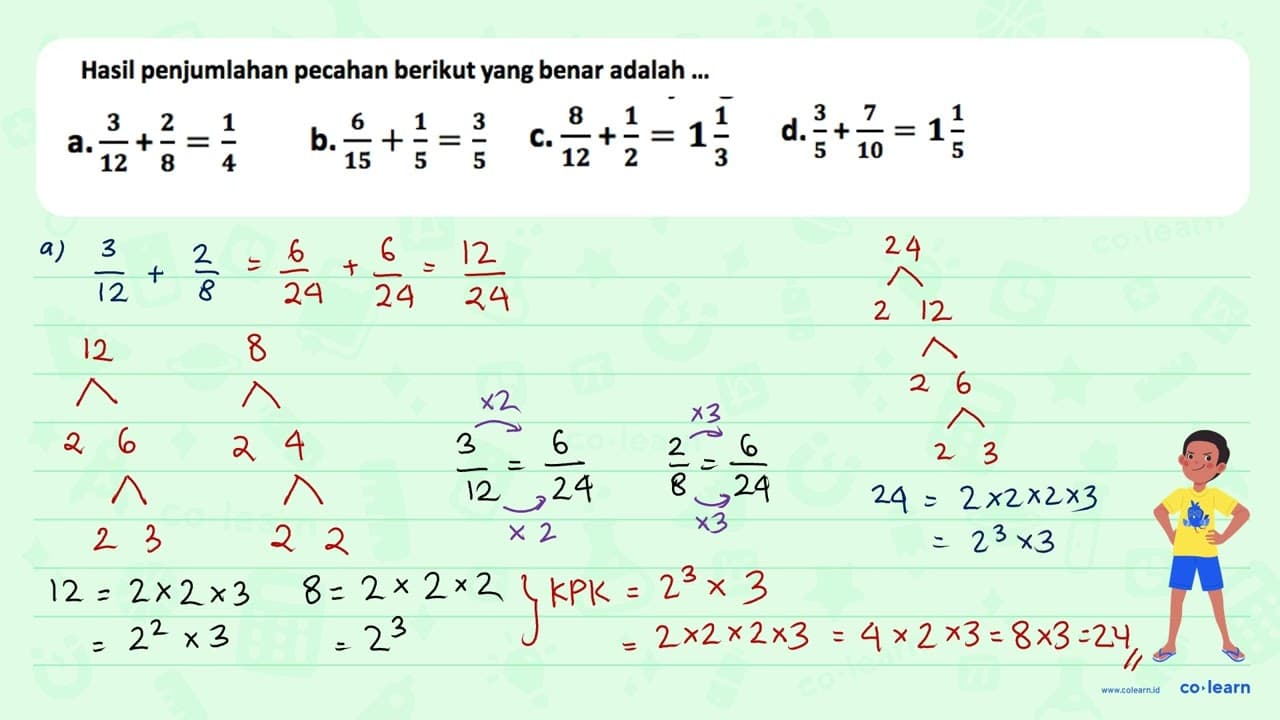 Hasil penjumlahan pecahan berikut yang benar adalah ...
a. 3/12 + 2/8 = 1/4 b. 6/15 + 1/5 = 3/5 c. 8/12 + 1/2 = 1 1/3 d. 3/5 + 7/10 = 1 1/5
a) 3/12 + 2/8 = 6/24 + 6/24 = 12/24
12 8
2 6 2 4
2 3 2 2
×2 ×3
3/12 = 6/24 2/8 = 6/24
×2 ×3
24
2 12
2 6
2 3
24 = 2×2×2×3
= 2³×3
12 = 2×2×3 8 = 2×2×2 } KPK = 2³ × 3
= 2² × 3 = 2³ = 2×2×2×3 = 4×2×3 = 8×3 = 24
www.colearn.id co·learn